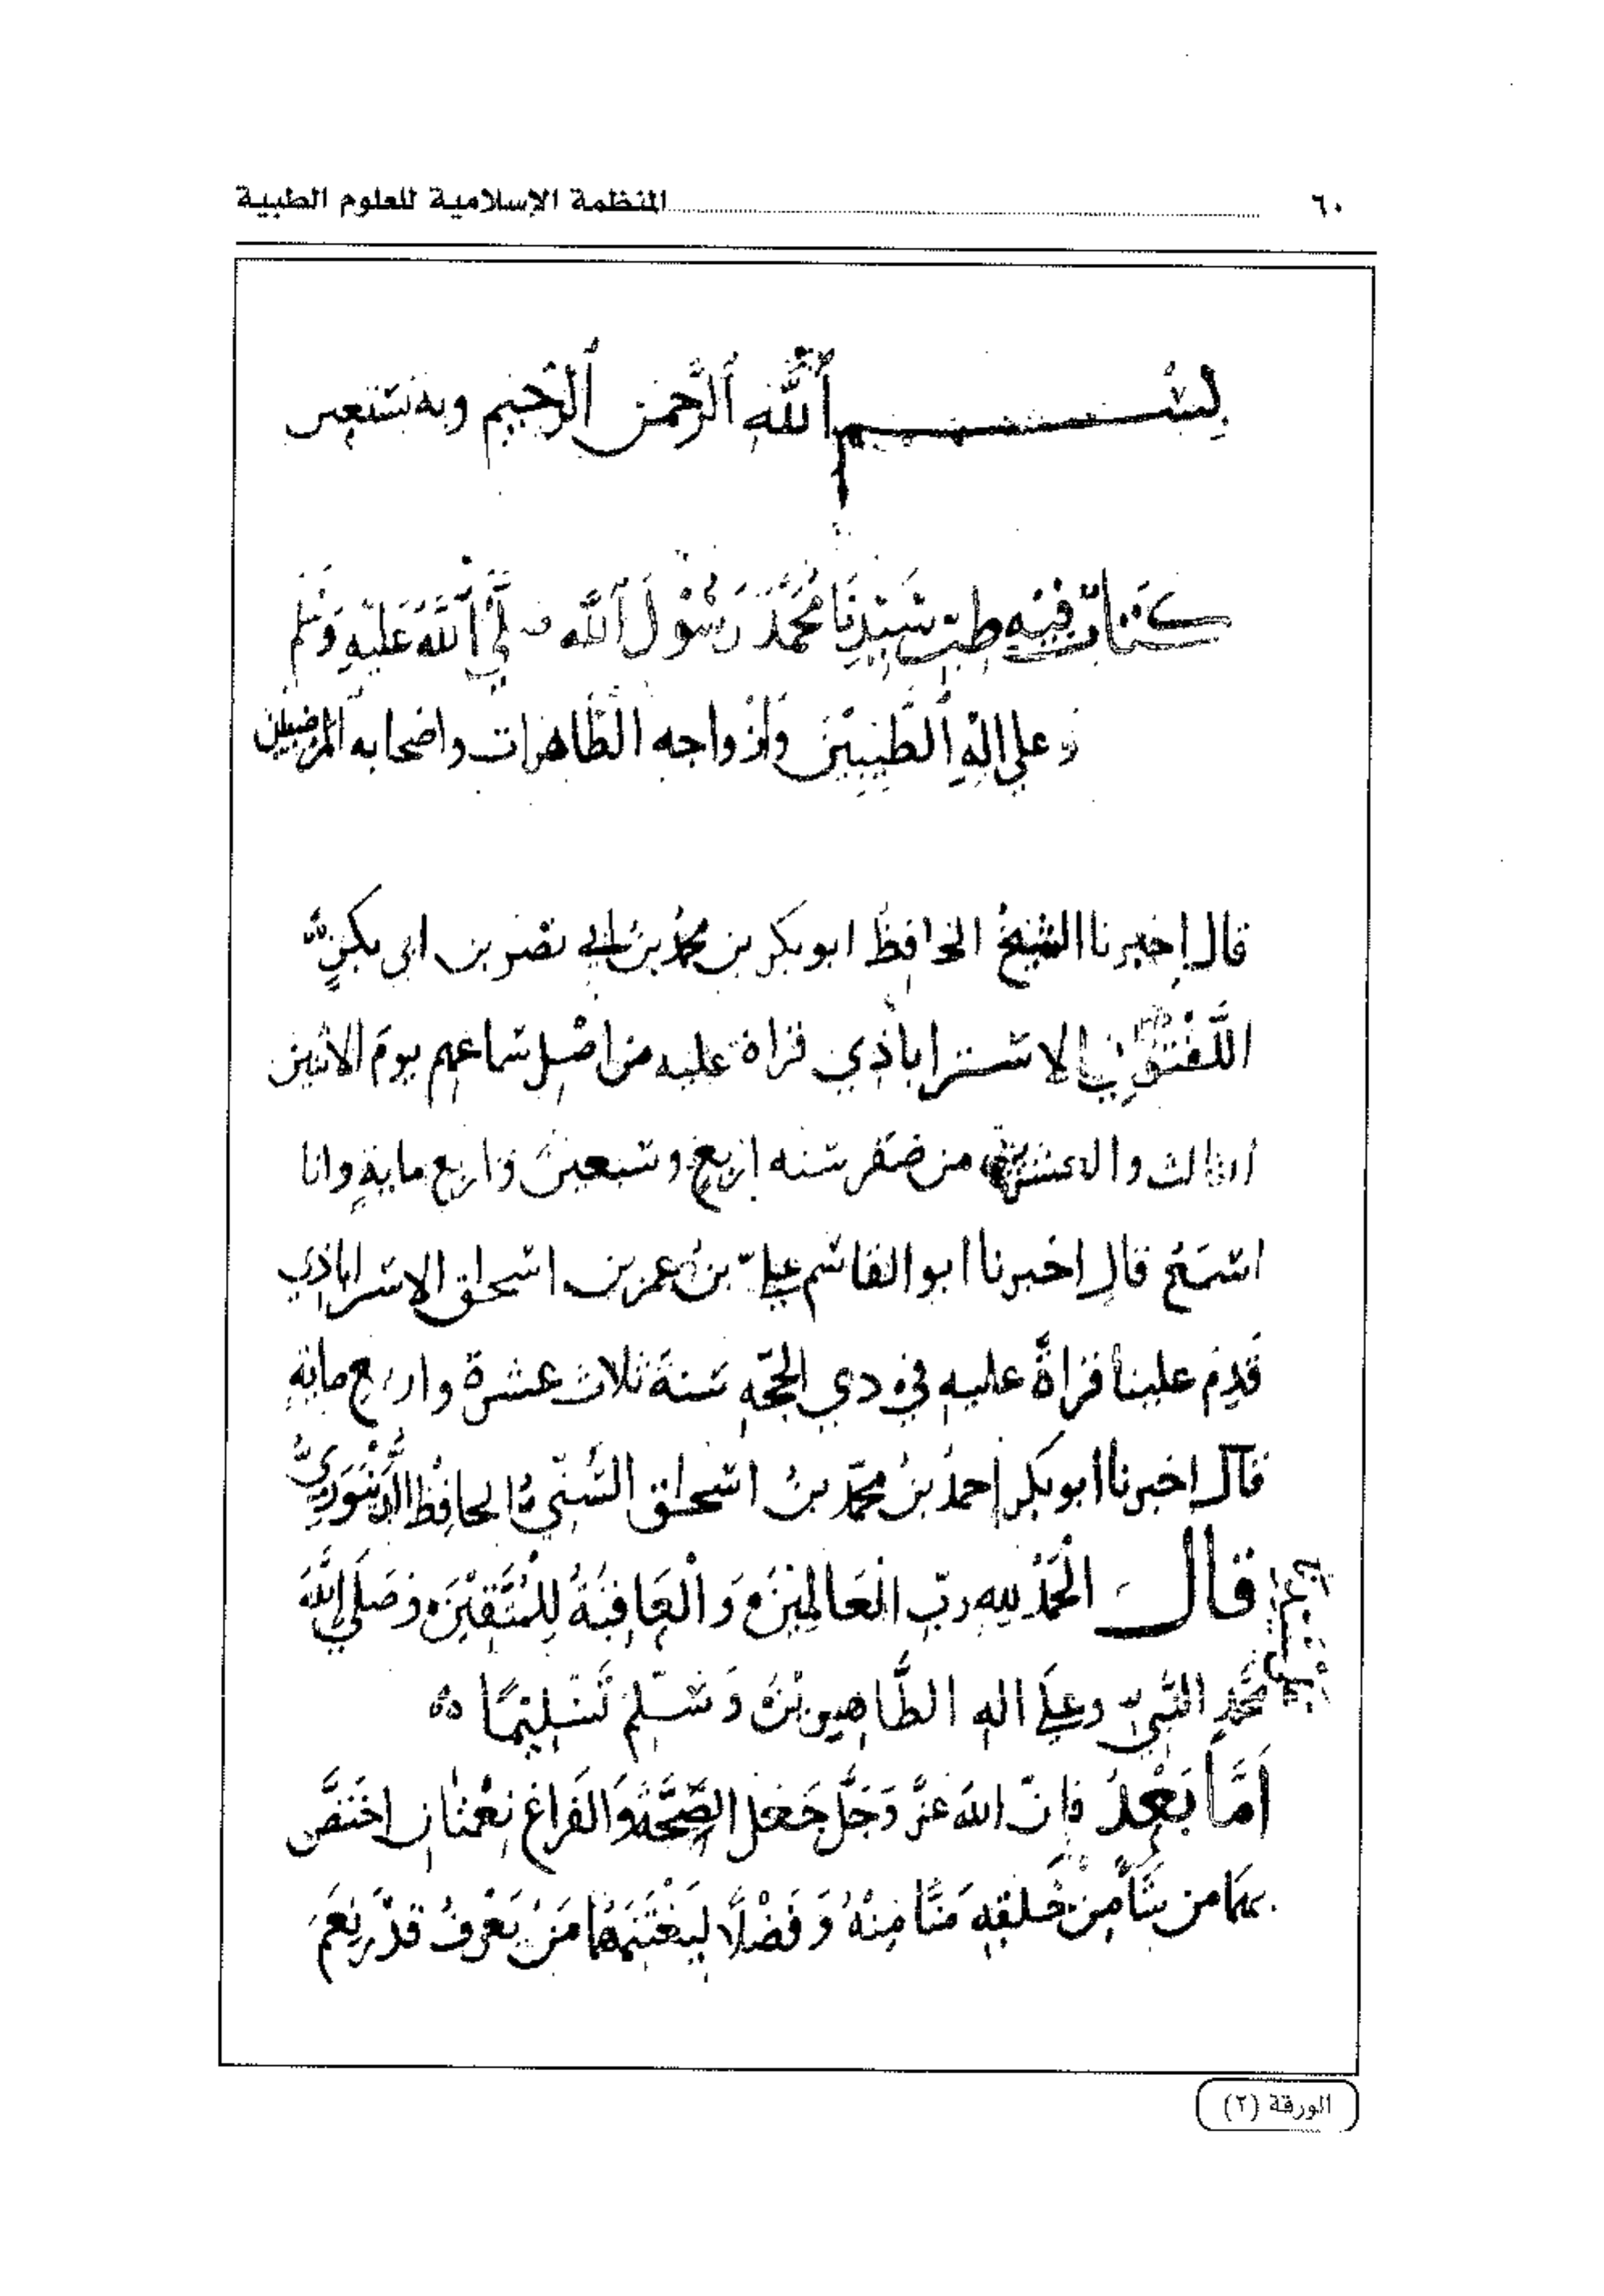 ٦٠ المنظمة الإسلامية للعلوم الطبية
بسم الله الرحمن الرحيم وبه نستعين
كتاب فيه طب سيدنا محمد رسول الله صلي الله عليه وسلم
وعلي اله الطيبين وازواجه الطاهرات واصحابه المرضيين
قال اخبرنا الشيخ الحافظ ابو بكر بن محمد بن ابي نصر بن ابي بكر
اللفتواني الاستراباذي قراة عليه من اصل سماعهم يوم الاثنين
الثالث والعشرين من صفر سنه اربع وسبعين واربع ماية وانا
اسمع قال اخبرنا ابو القاسم علي بن عمر بن اسحاق الاسراباذي
قدم علينا قراة عليه في دي الحجه سنة ثلاث عشرة واربع ماية
قال اخبرنا ابو بكر احمد بن محمد بن اسحاق السني الحافظ الدينوري
قال الحمد لله رب العالمين والعاقبة للمتقين وصلي الله
محمد النبي وعلي اله الطاهرين وسلم تسليما
اما بعد فان الله عز وجل جعل الصحة والفراغ نعمتان اختص
بهما من شا من خلقه منا منه وفضلا ليغتنمهما من يعرف قدر نعم
الورقة (٢)